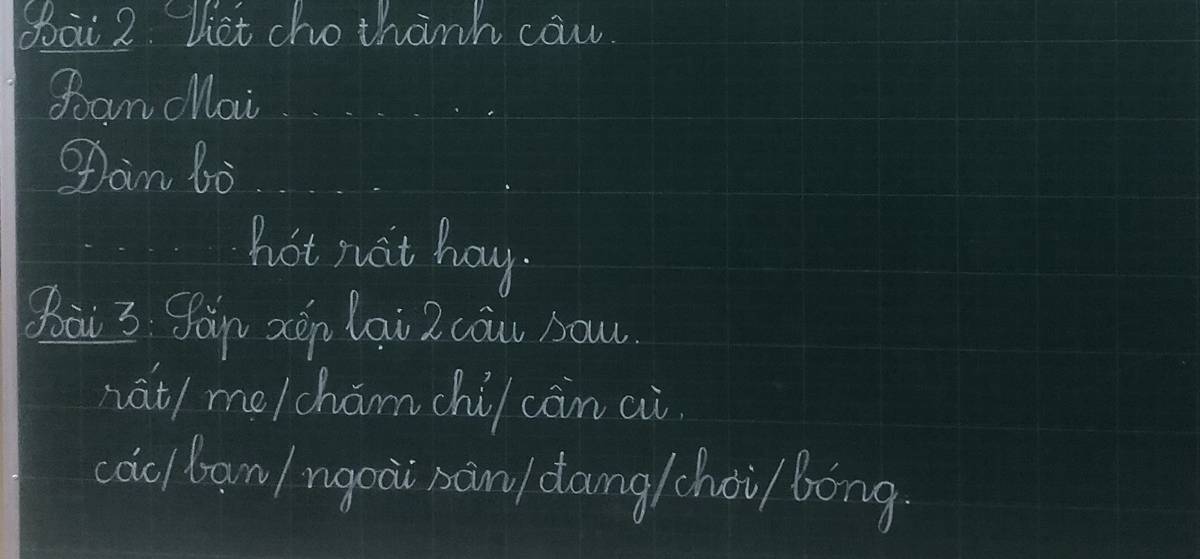 Bài 2: Viết cho thành câu.
Bạn Mai .........
Đàn bò ......
...... hót rất hay.
Bài 3: Sắp xếp lại 2 câu sau.
rất/ mẹ/ chăm chỉ/ cần cù.
các/ bạn/ ngoài sân/ đang/ chơi/ bóng.